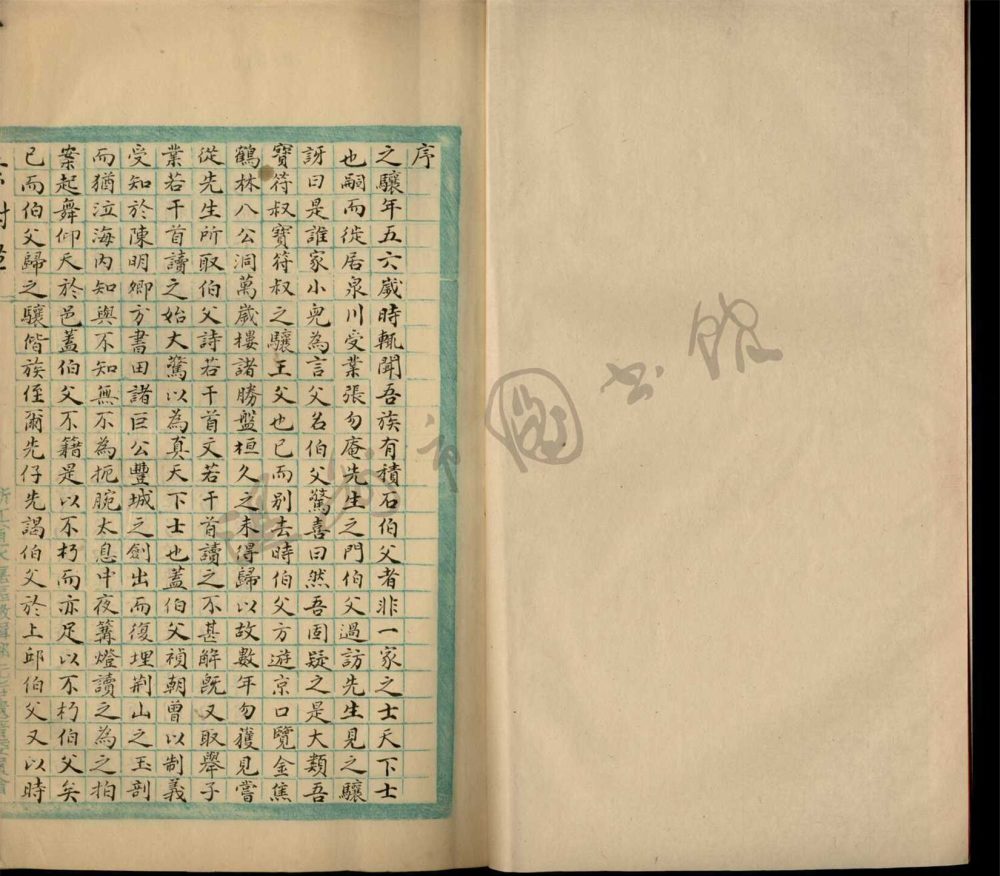 序
之驤年五六歲時輒聞吾族有積石伯父者非一家之士天下士
也嗣而徙居泉川受業張勿庵先生之門伯父過訪先生見之驤
訝曰是誰家小兒為言父名伯父驚喜曰然吾固疑之是大類吾
寶符叔寶符叔之驤王父也已而別去時伯父方遊京口覽金焦
鶴林八公洞萬歲樓諸勝盤桓久之未得歸以故數年勿獲見嘗
從先生所取伯父詩若干首文若干首讀之不甚解既又取舉子
業若干首讀之始大驚以為真天下士也蓋伯父禎朝曾以制義
受知於陳明卿方書田諸巨公豐城之劍出而復埋荆山之玉剖
而猶泣海內知與不知無不為扼腕太息中夜篝燈讀之為之拍
案起舞仰天於邑蓋伯父不籍是以不朽而亦足以不朽伯父矣
已而伯父歸之驤偕族侄爾先仔先謁伯父於上邱伯父又以時
市圖書館